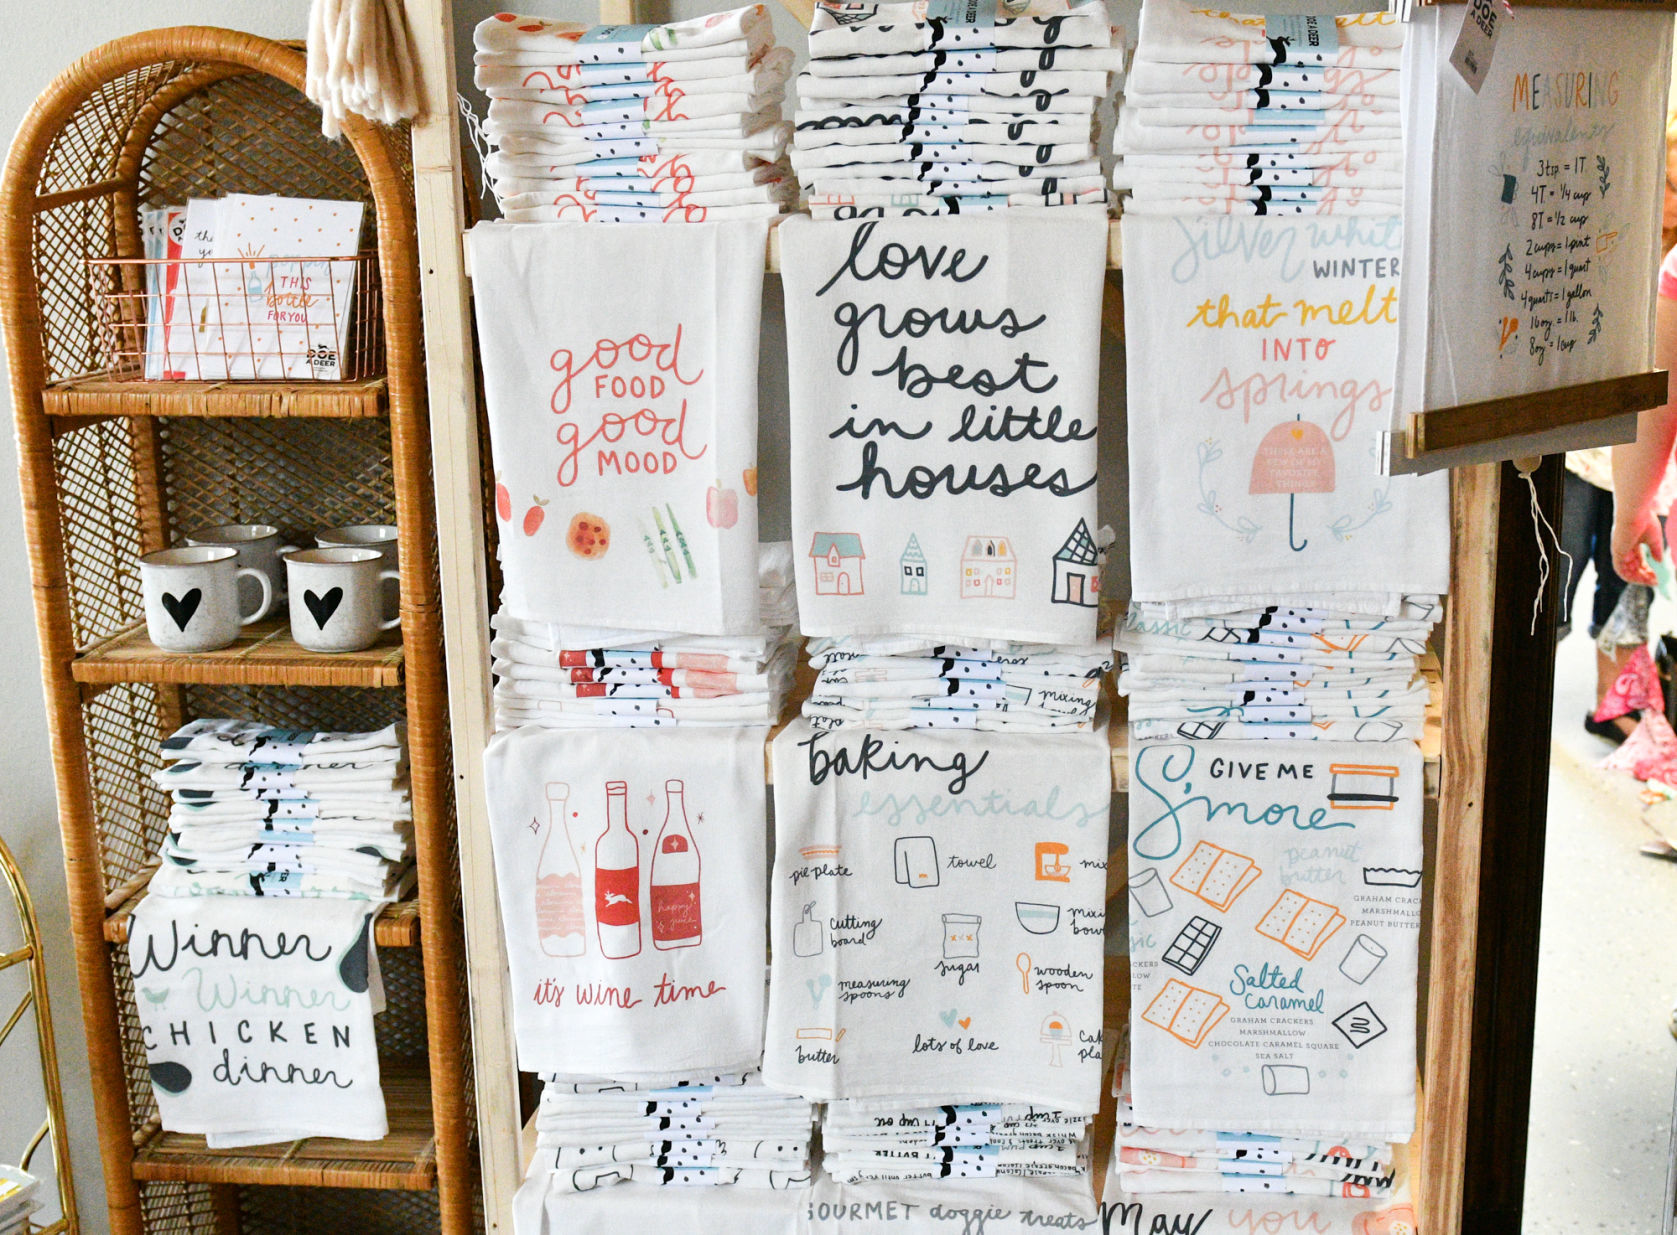 THIS
bottle
FOR YOU
DOE
A DEER
Winner
Winner
CHICKEN
dinner
good
FOOD
good
MOOD
love
grows
best
in little
houses
silver white
WINTER
that melt
INTO
springs
THESE ARE A
FEW OF MY
FAVORITE
THINGS
DOE
A DEER
MEASURING
equivalents
3 tsp = 1T
4T = 1/4 cup
8T = 1/2 cup
2 cups = 1 pint
4 cups = 1 quart
4 quarts = 1 gallon
16 oz. = 1 lb.
8 oz = 1 cup
happy
juice
it's wine time
baking
essentials
pie plate
towel
cutting
board
sugar
measuring
spoons
wooden
spoon
butter
lots of love
GIVE ME
S'more
peanut
butter
GRAHAM CRACK
MARSHMALLO
PEANUT BUTTER
Salted
Caramel
GRAHAM CRACKERS
MARSHMALLOW
CHOCOLATE CARAMEL SQUARE
SEA SALT
mixing
GOURMET doggie treats
May you